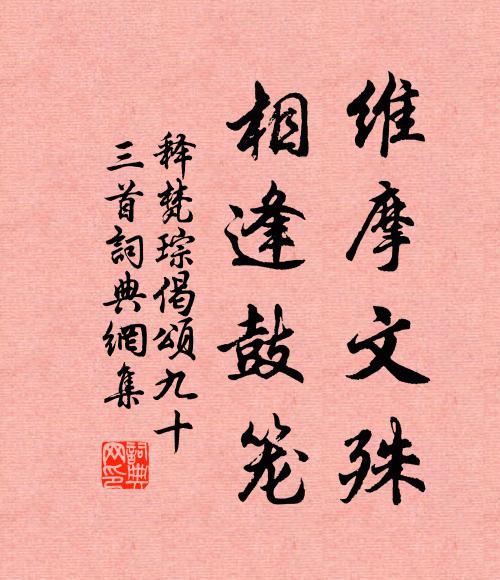 維摩文殊
相逢鼓笼
释梵琮偈頌九十
三首詞典網集
詞典
网印